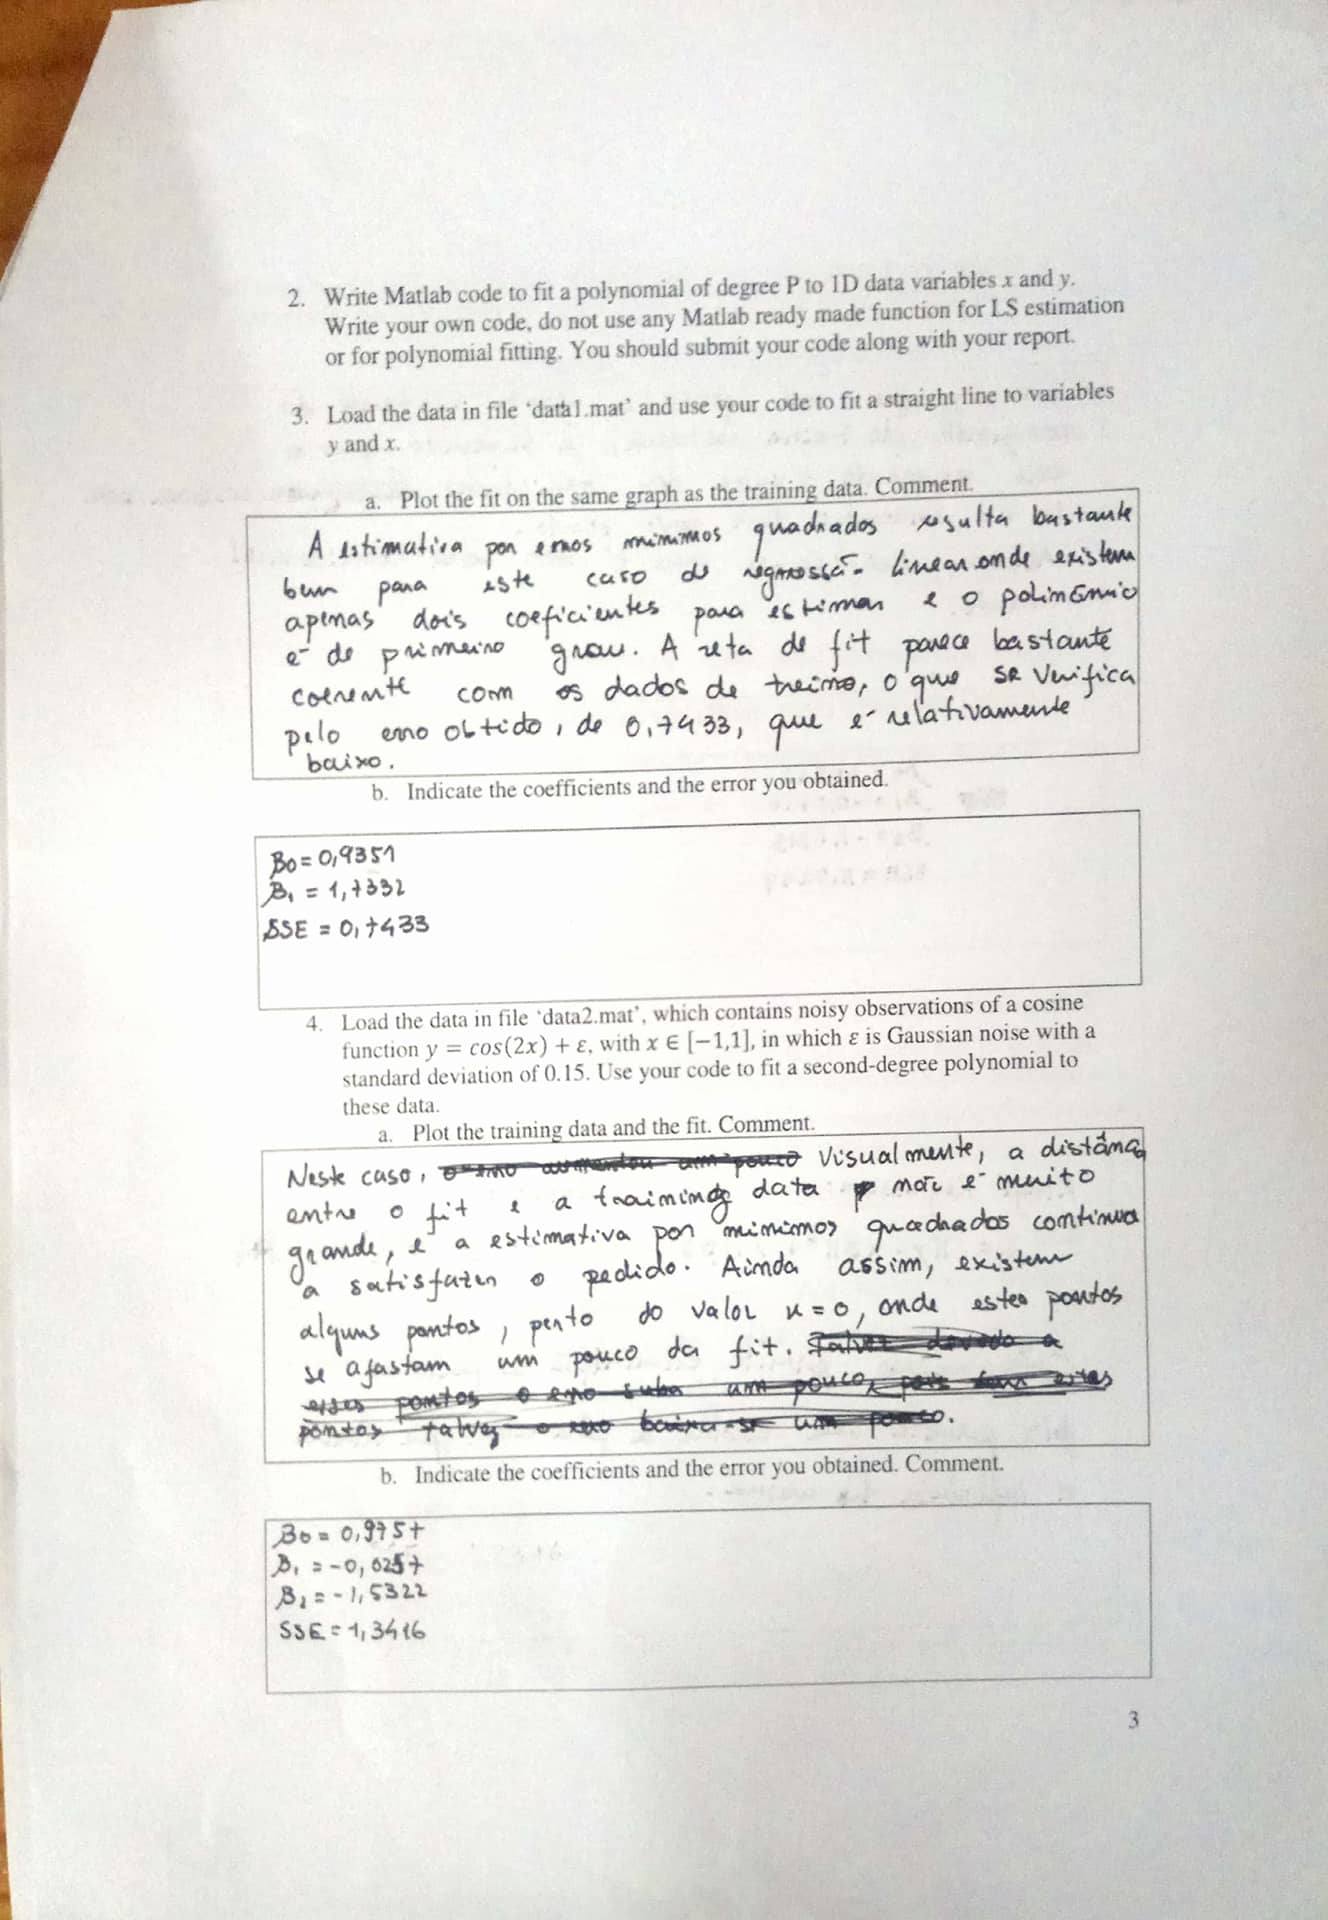 2. Write Matlab code to fit a polynomial of degree P to 1D data variables x and y.
Write your own code, do not use any Matlab ready made function for LS estimation
or for polynomial fitting. You should submit your code along with your report.
3. Load the data in file 'data1.mat' and use your code to fit a straight line to variables
y and x.
a. Plot the fit on the same graph as the training data. Comment.
A estimativa por erros mínimos quadrados resulta bastante
bem para este caso de regressão linear onde existem
apenas dois coeficientes para estimar e o polinómio
é de primeiro grau. A reta de fit parece bastante
coerente com os dados de treino, o que se verifica
pelo erro obtido, de 0,7433, que é relativamente
baixo.
b. Indicate the coefficients and the error you obtained.
β0 = 0,9351
β1 = 1,7332
SSE = 0,7433
4. Load the data in file 'data2.mat', which contains noisy observations of a cosine
function y = cos(2x) + ε, with x ∈ [−1,1], in which ε is Gaussian noise with a
standard deviation of 0.15. Use your code to fit a second-degree polynomial to
these data.
a. Plot the training data and the fit. Comment.
Neste caso, o erro aumentou um pouco Visualmente, a distânc
entre o fit e a training data não é muito
grande, e a estimativa por mínimos quadrados continua
a satisfazer o pedido. Ainda assim, existem
alguns pontos, perto do valor x=0, onde estes pontos
se afastam um pouco da fit. Talvez devido a
esses pontos o erro suba um pouco, pois sem estes
pontos talvez o erro baixa-se um pouco.
b. Indicate the coefficients and the error you obtained. Comment.
β0 = 0,9757
β1 = -0,0257
β2 = -1,5322
SSE = 1,3416
3